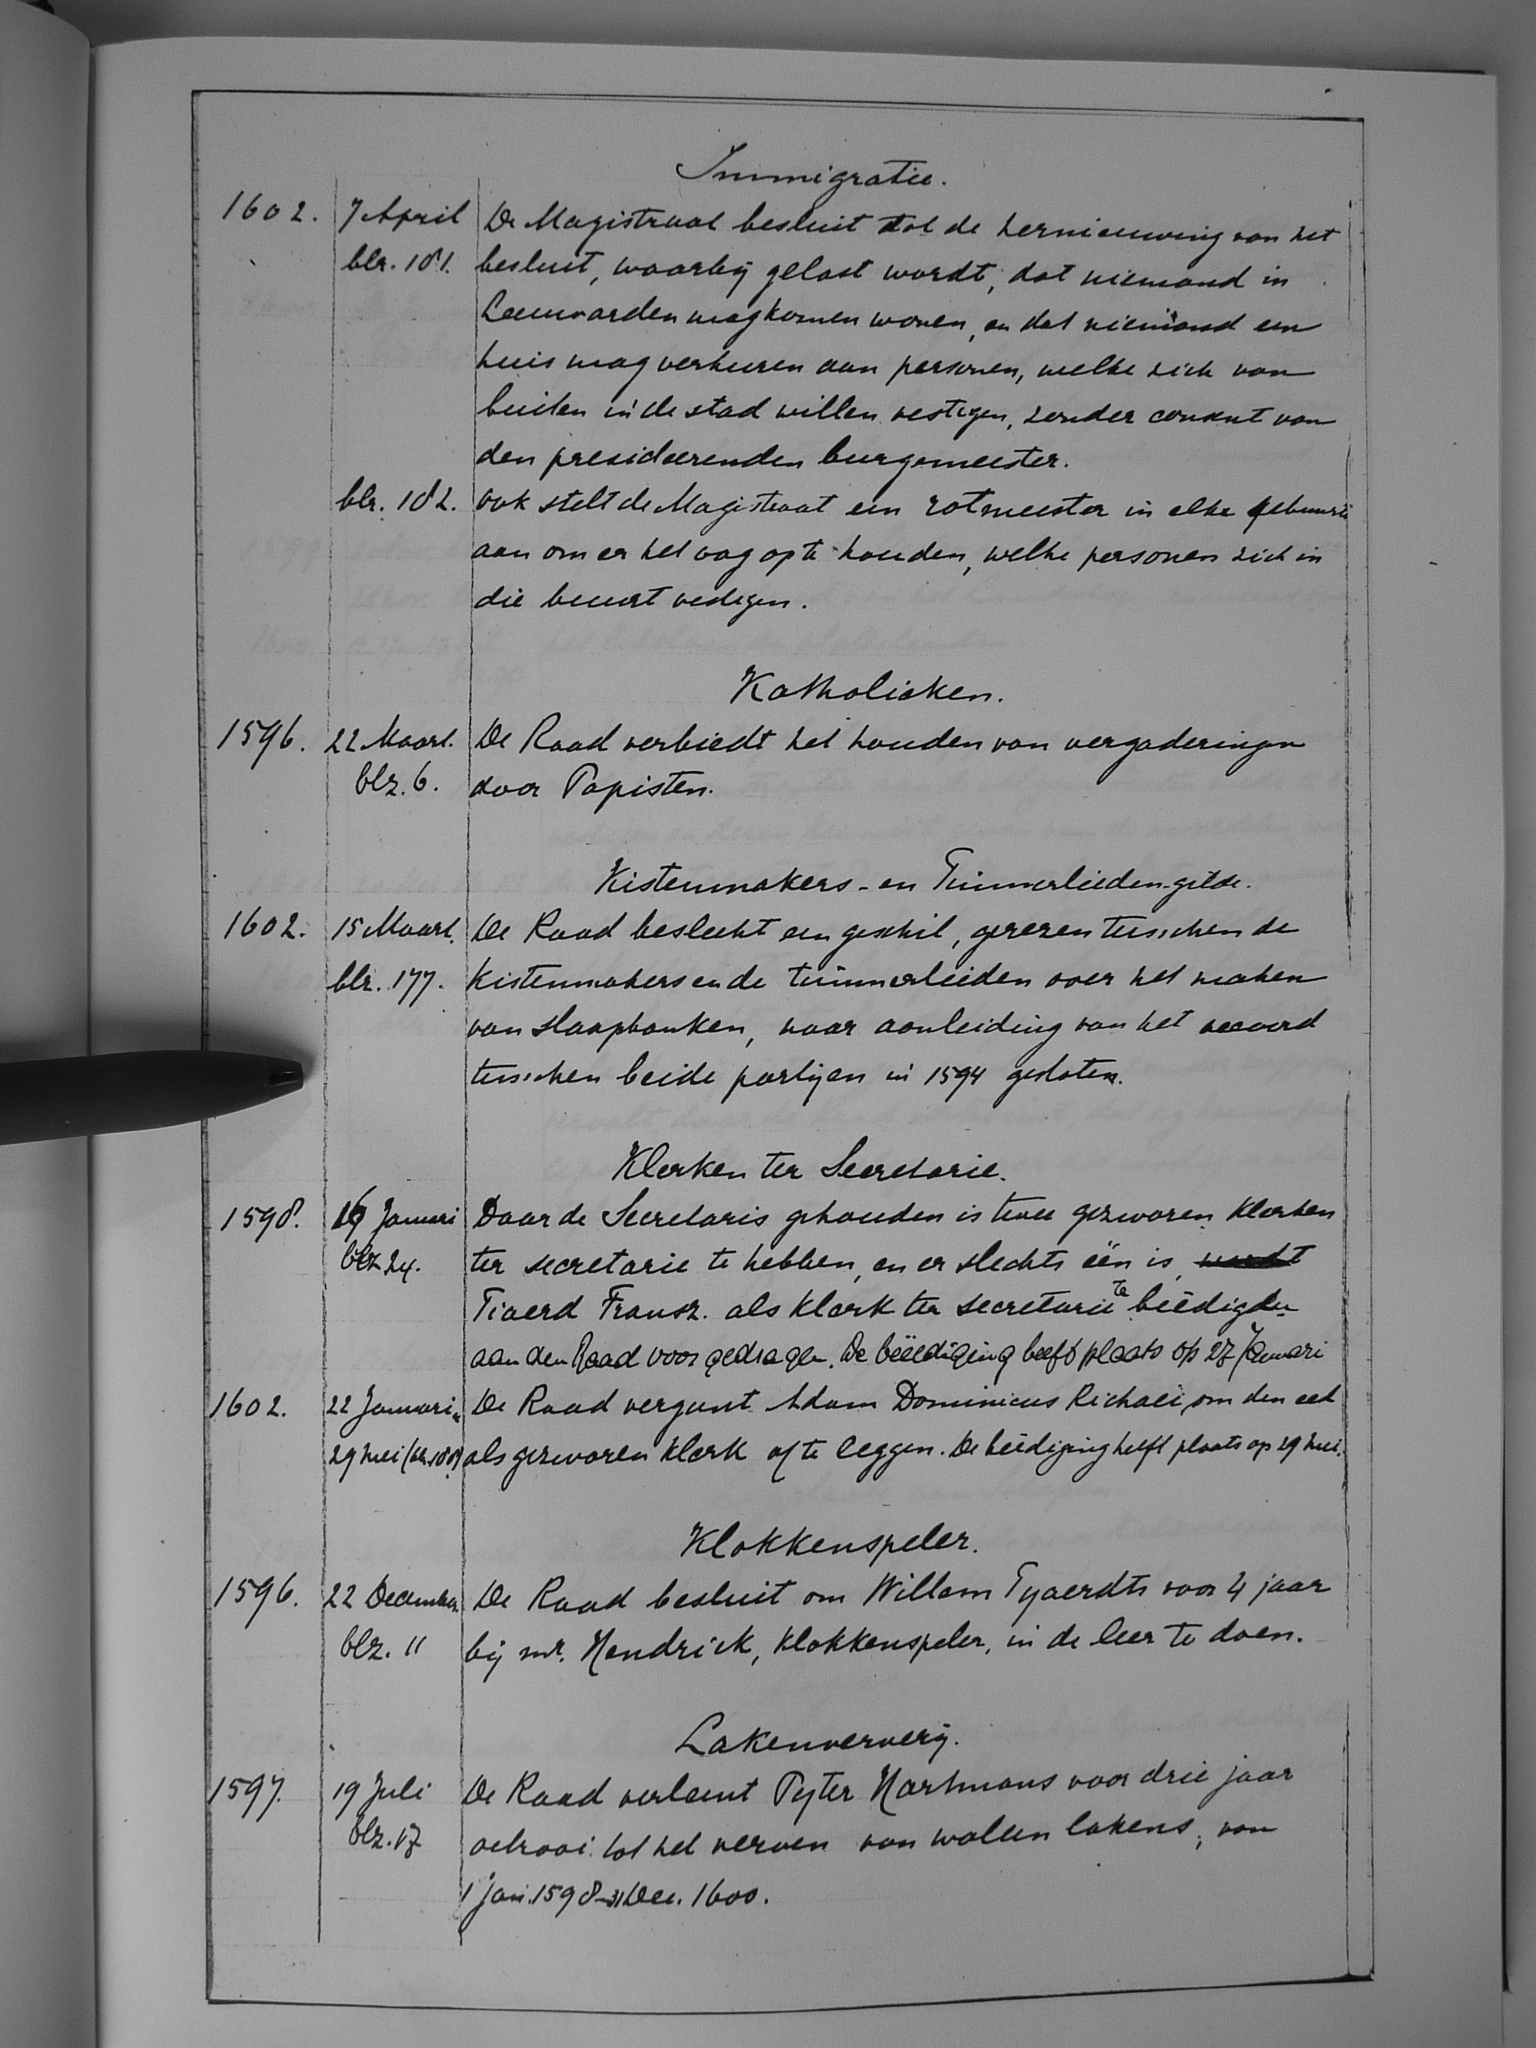 Immigratie.
1602. 7 April De Magistraat besluit tot de hernieuwing van het
blz. 181. besluit, waarbij gelast wordt, dat niemand in
Leeuwarden mag komen wonen, en dat niemand een
huis mag verhuren aan personen, welke zich van
buiten in de stad willen vestigen, zonder consent van
den presideerenden burgemeester.
blz. 182. Ook stelt de Magistraat een rotmeester in elke gebuurte
aan om er het oog op te houden, welke personen zich in
die buurt vestigen.
Katholieken.
1596. 22 Maart. De Raad verbiedt het houden van vergaderingen
blz. 6. door Papisten.
Kistenmakers- en Timmerliedengilde.
1602. 15 Maart. De Raad beslecht een geschil, gerezen tusschen de
blz. 177. kistenmakers en de timmerlieden over het maken
van slaapbanken, naar aanleiding van het accoord
tusschen beide partijen in 1594 gesloten.
Klerken ter Secretarie.
1598. 16 Januari Daar de Secretaris gehouden is twee gezworen klerken
blz 24. ter secretarie te hebben, en er slechts één is,
Tiaerd Fransz. als klerk ter secretarie te beëedigen
aan den Raad voorgedragen. De beëediging heeft plaats op 27 Januari
1602. 22 Januari De Raad vergunt Adam Dominicus Richaei, om den eed
29 Mei (blz. 188) als gezworen klerk af te leggen. De beëdiging heeft plaats op 29 Mei.
Klokkenspeler.
1596. 22 December De Raad besluit om Willem Tyaerdts voor 4 jaar
blz. 11 bij mr. Hendrick, klokkenspeler, in de leer te doen.
Lakenververij.
1597. 19 Juli De Raad verleent Pyter Hartmans voor drie jaar
blz. 17 octrooi tot het verven van wollen lakens, van
1 Jan. 1598-31 Dec. 1600.